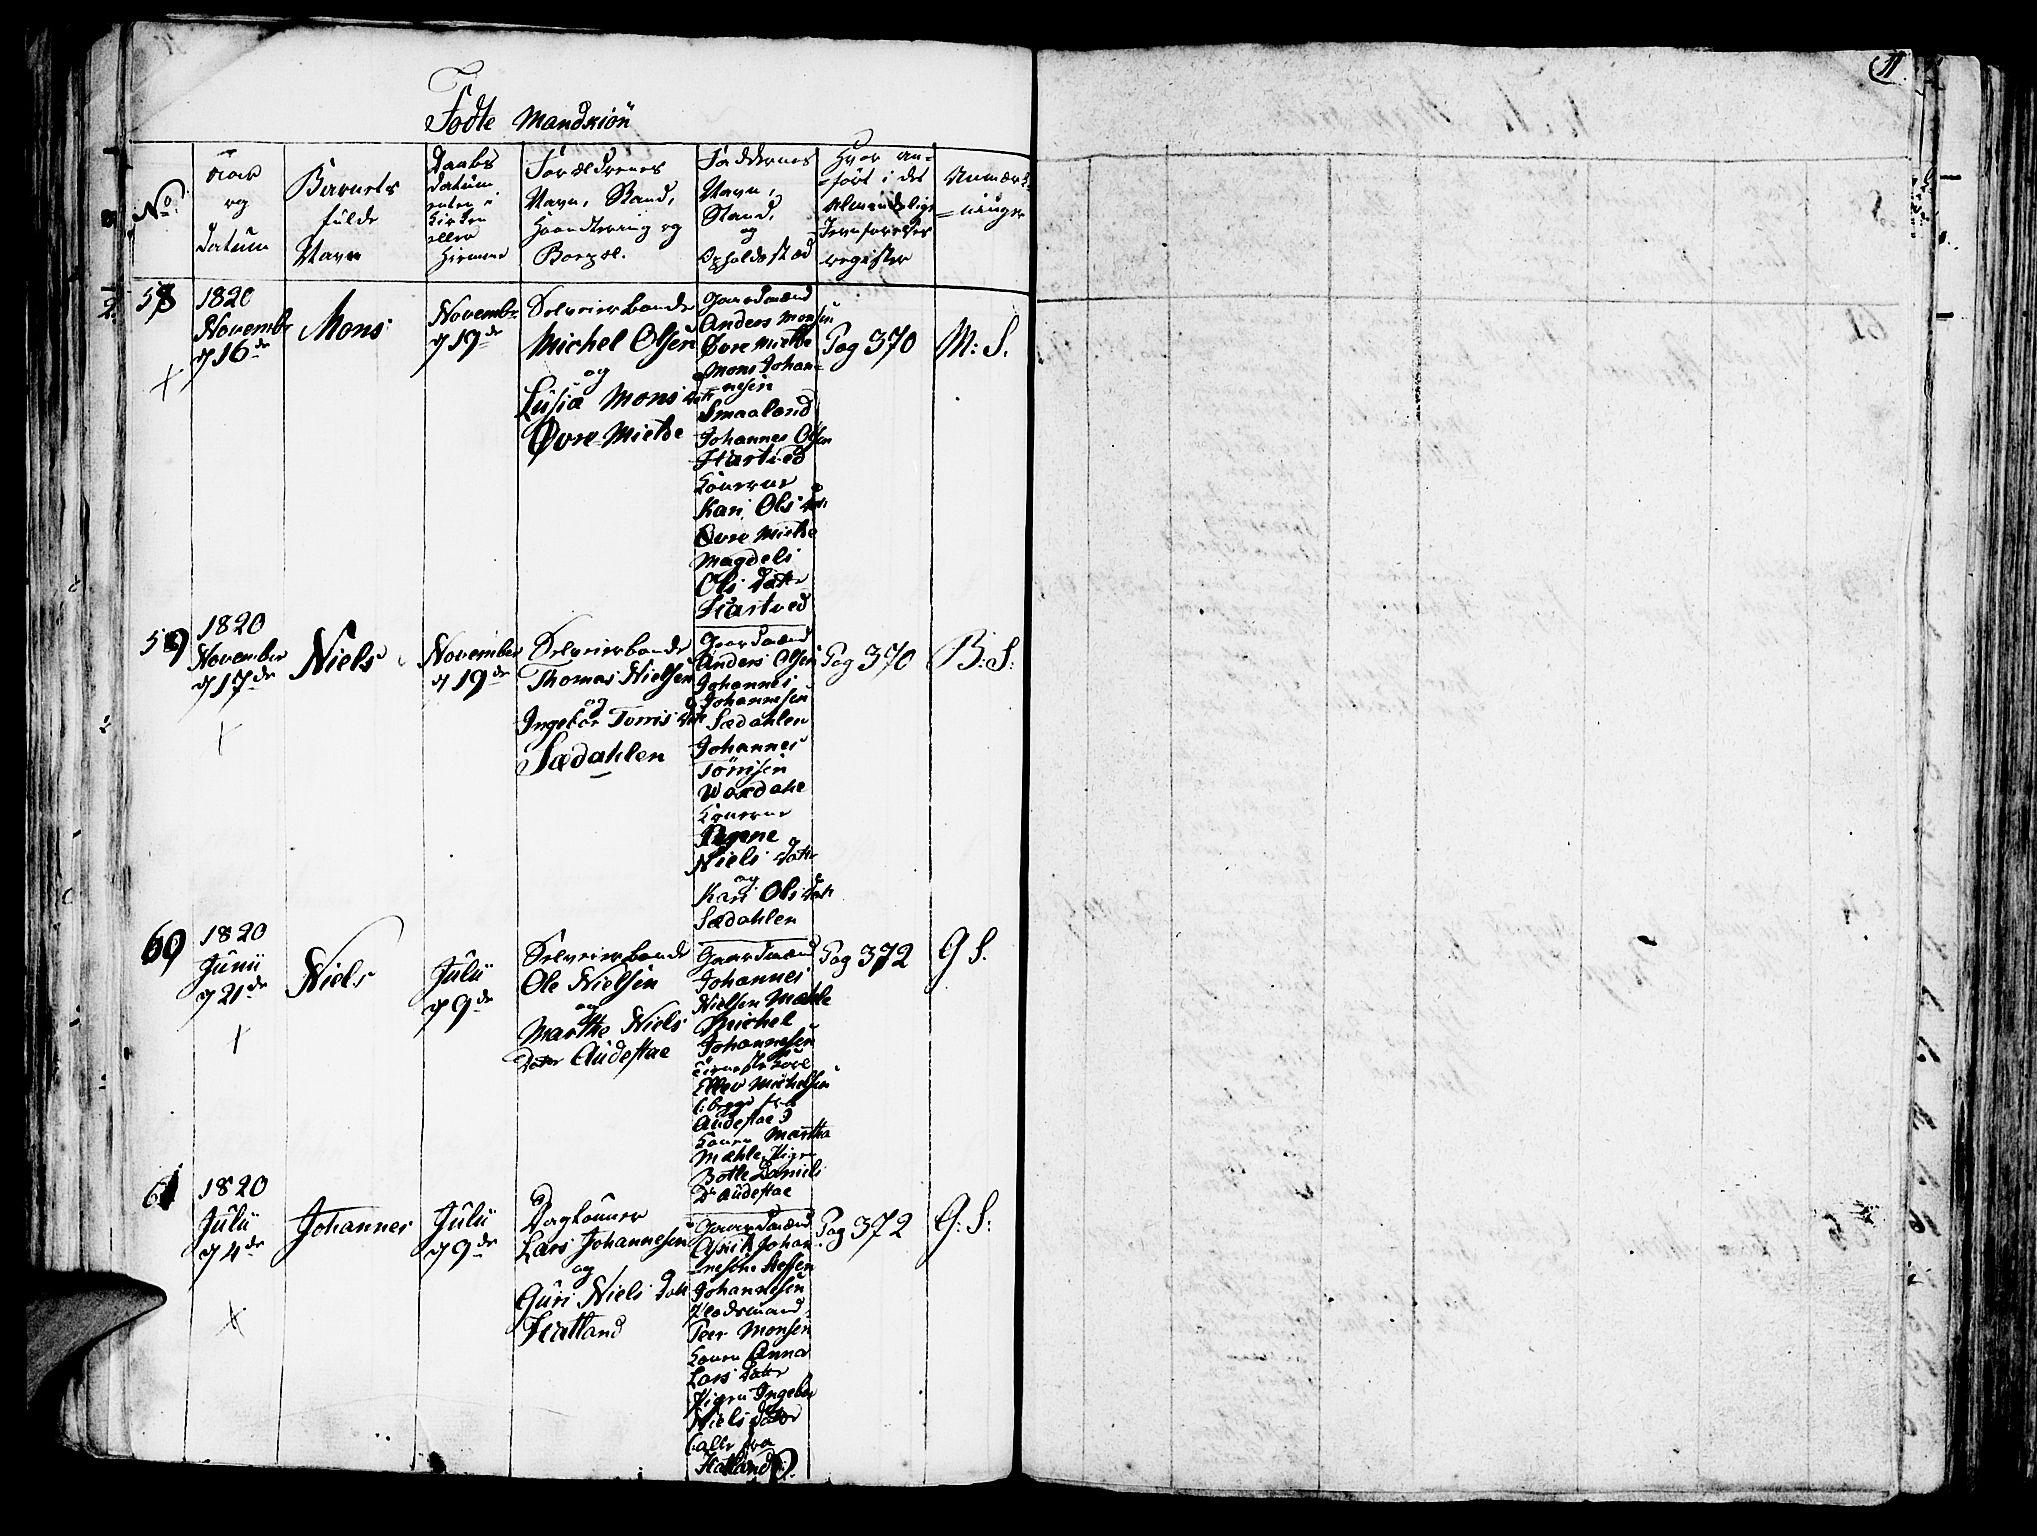 11
Fødte Mandkiön
No.
Aar
og
datum
Barnets
fulde
Navn
Daabs
datum
enten i
Kirken
eller
Hiemme
Forældrenes
Navn, Stand,
Haandtering og
Boepæl.
Faddernes
Navn,
Stand,
og
Opholdssted
Hvor an=
=ført i det
Almindelige
Jevnførelses
register
Anmærk
=ninger
58
1820
Novembr
d 16de
Mons
Novembr
d 19de
Selveierbonde
Michel Olsen
og
Lusia Monsdatr
Øvre Mielde
Gaardmænd
Anders Monsen
Øvre Mielde
Mons Johan=
=nesen
Smaaland
Johannes Olsen
Hartved
Konerne
Kari Olsdatr
Øvre Mielde
Magdeli
Olsdatter
Hartved
Pag 370
M: S.
59
1820
November
d 17de
Niels
November
d 19de
Selveierbonde
Thomas Nielsen
og
Ingebor Torrisdatr
Sædahlen
Gaardmænd
Anders Olsen
Johannes
Johannesen
Sædahlen
Johannes
Törrisen
Waxdahl
Konerne
Ragne
Nielsdatr
og
Kari Olsdatr
Sædahlen
Pag 370
B: S:
60
1820
Junii
d 21de
Niels
Julii
d 9de
Selveierbonde
Ole Nielsen
og
Marthe Niels
Datter Audestae
Gaardmænd
Johannes
Nielsen Mæhle
Michel
Johannesen
Eller Michelsen
begge fra
Audestae
Konen Martha
Mæhle, Pigen
Botle Daniels
Dr Audestae
Pag 372
G S.
61
1820
Julii
d 4de
Johannes
Julii
d 9de
Dagleonner
Lars Johannesen
og
Guri Nielsdatr
Hatland
Gaardmænd
Johan
=nesen
Johannesen
Pladsmand
Peer Monsen
Konen Anna
Larsdatter
Pigen Ingebor
Nielsdatter
alle fra
Hatland
Pag 372
G: S: